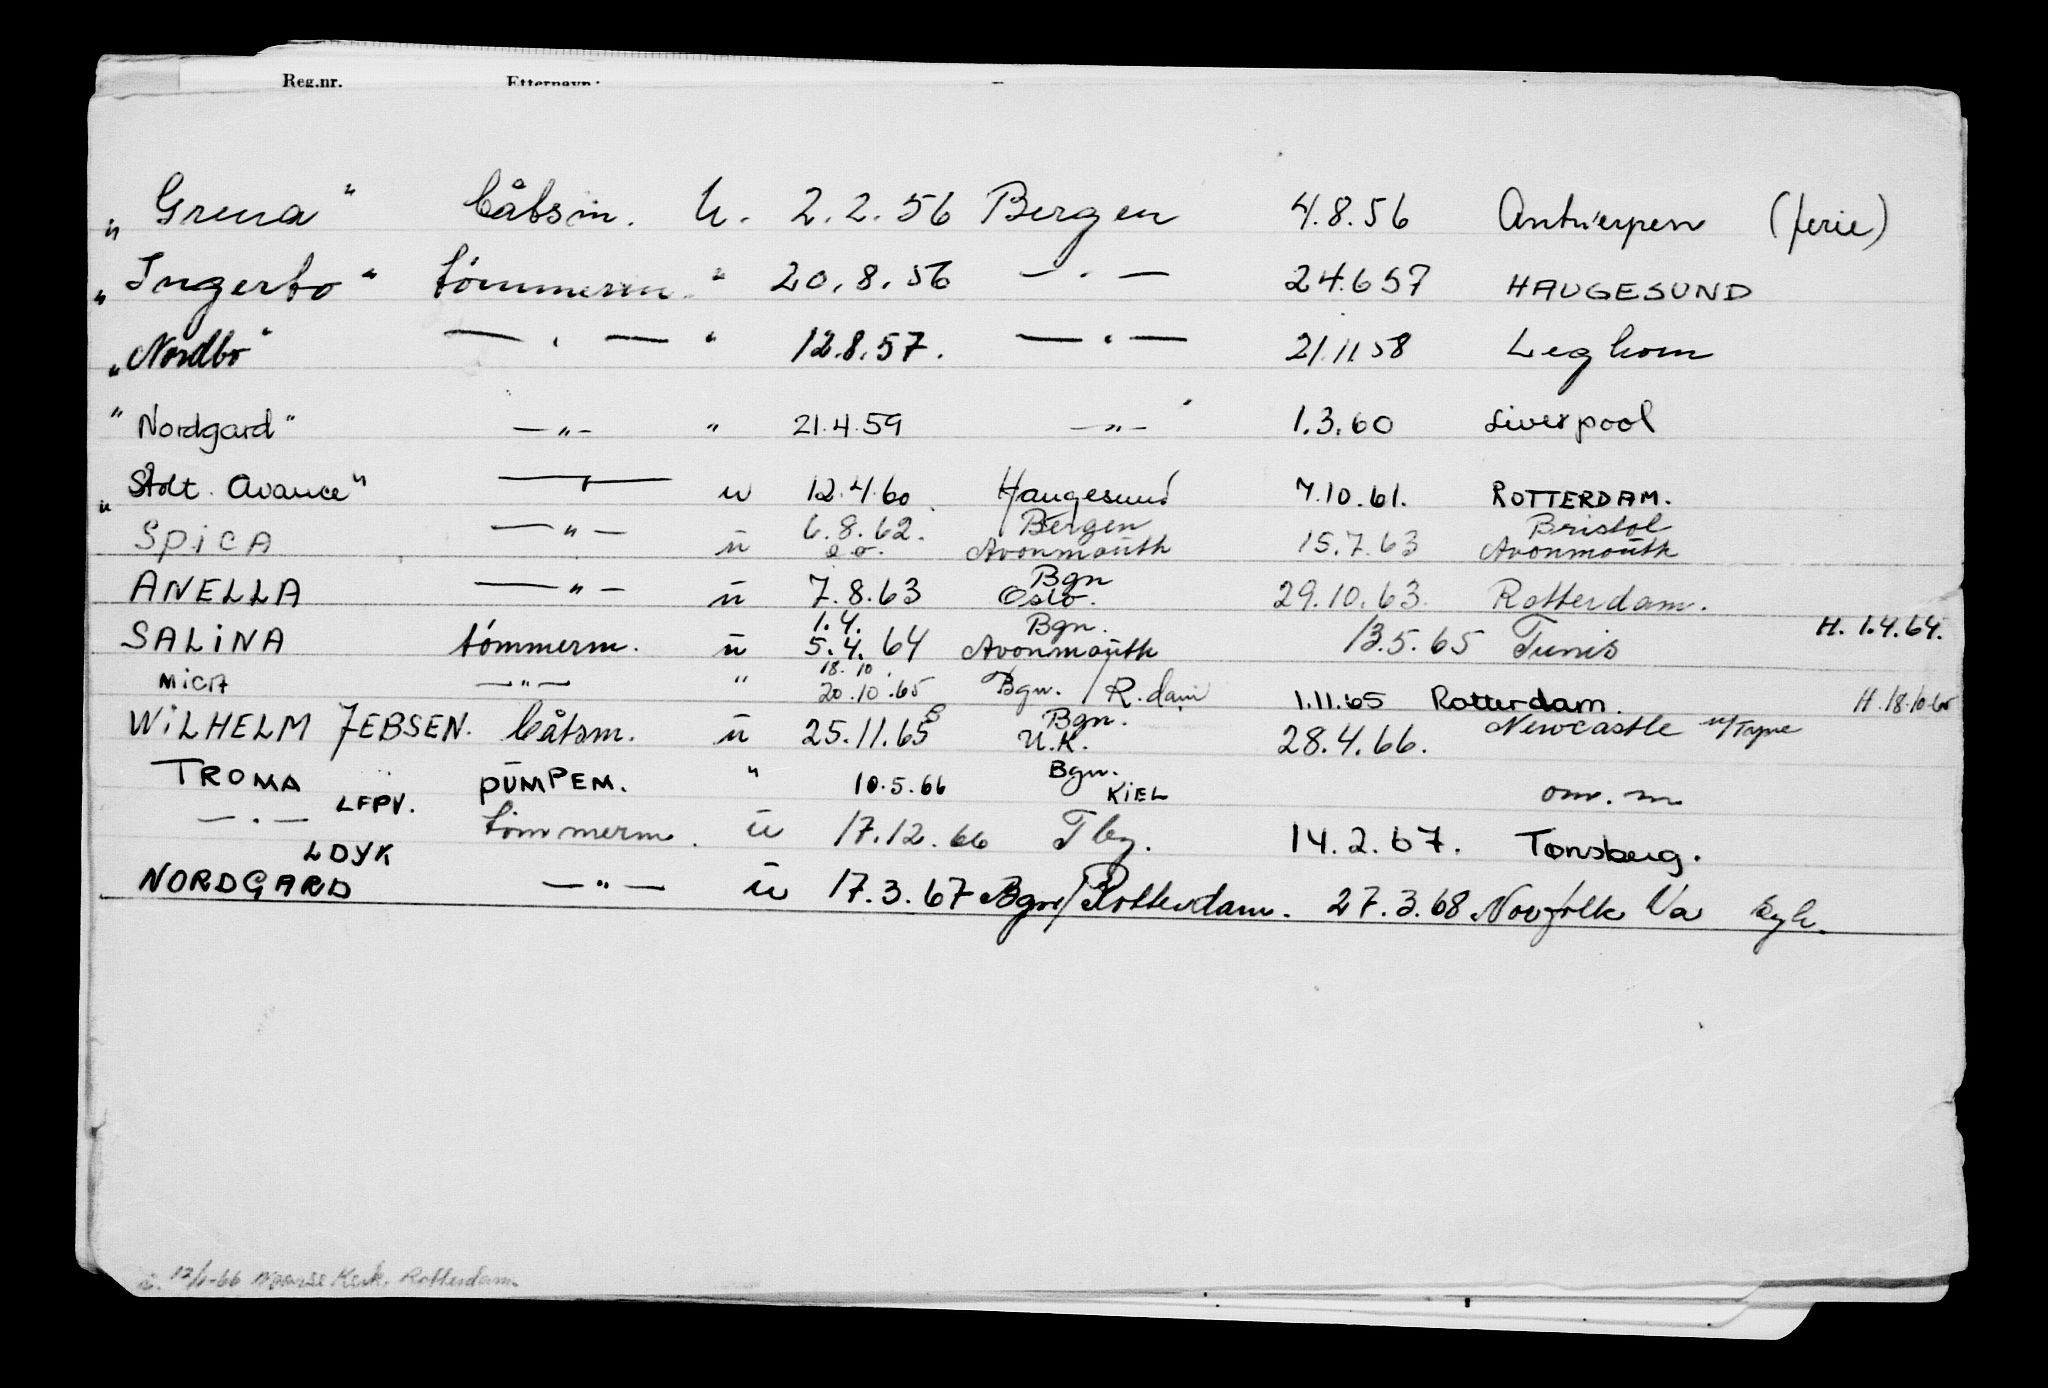 Reg.nr. Etternavn:
"Grena" båtsm. u. 2.2.56 Bergen 4.8.56 Antwerpen (ferie)
"Ingerto" tømmerm. " 20.8.56 — . — 24.6 57 HAUGESUND
"Nordbo" — . — " 12.8.57. — . — 21.11 58 Leghorn
"Nordgard" —"— " 21.4.59 —"— 1.3.60 Liverpool
"Stolt Avance" — " — u 12.4.60. Haugesund 7.10.61. ROTTERDAM.
Bergen Bristol
SPiCA — " — u 6.8.62. Avonmouth 15.7.63 Avonmouth
Bgn
ANELLA — " — u 7.8.63 Oslo. 29.10.63. Rotterdam.
1.4. Bgn. H. 1.4.64.
SALiNA tømmerm. u 5.4.64 Avonmouth 13.5.65 Tunis
18.10.
MiCA —"— " 20.10.65 Bgn. / R.dam 1.11.65 Rotterdam. H.18.10.65
Bgn. Newcastle u/Tyne
WiLHELM JEBSEN. båtsm. u 25.11.65 U.K. 28.4.66.
Bgn.
TROMA LFPV. PUMPEM. " 10.5.66 KiEL om. m
— . — tømmerm. u 17.12.66 Tbg. 14.2.67. Tønsberg.
LDYK
NORDGARD — " — u 17.3.67 Bgn/Rotterdam. 27.3.68 Norfolk Va syk.
12/1-66 Noorse Kerk, Rotterdam.